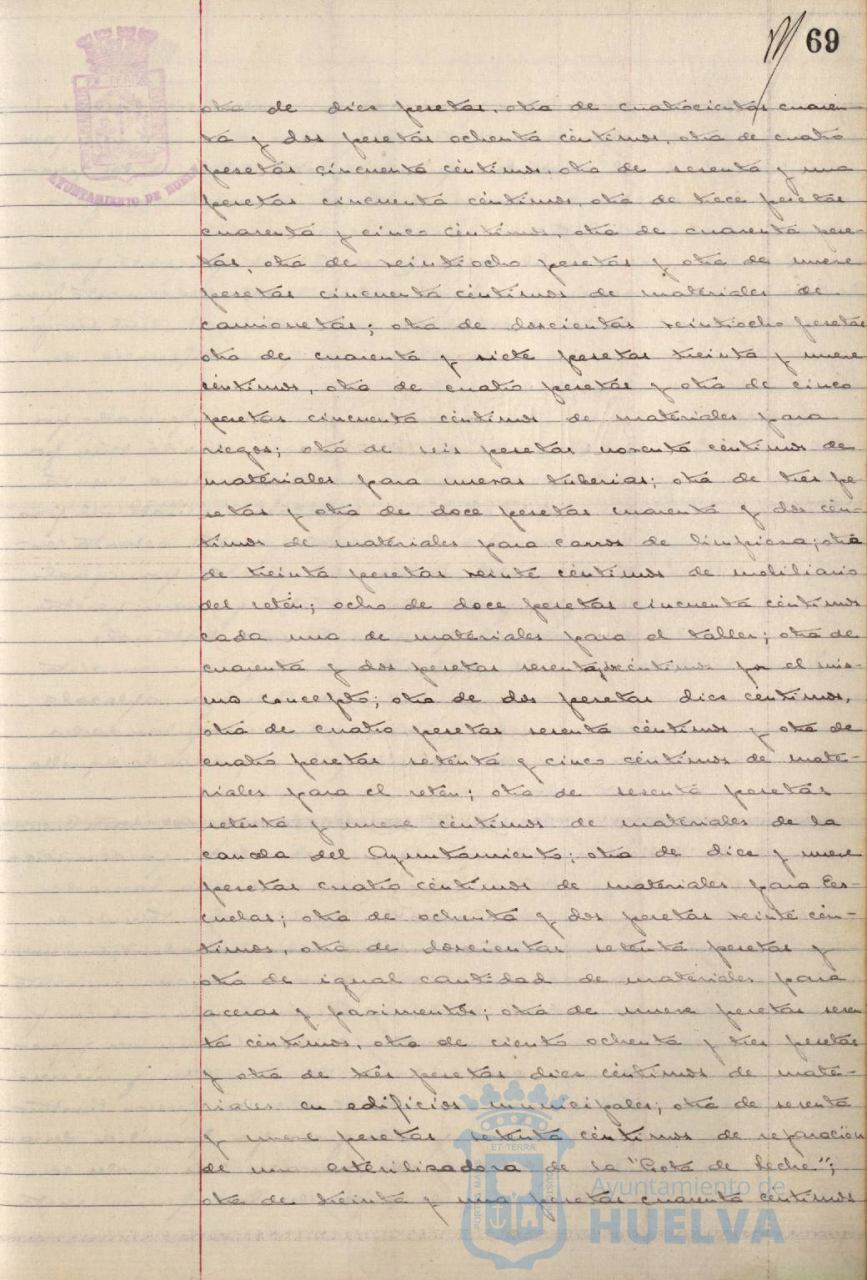 69
AYUNTAMIENTO DE HUELVA
otra de diez pesetas, otra de cuatrocientas cuaren-
ta y dos pesetas ochenta céntimos, otra de cuatro
pesetas cincuenta céntimos, otra de sesenta y una
pesetas cincuenta céntimos, otra de trece pesetas
cuarenta y cinco céntimos, otra de cuarenta pese-
tas, otra de veintiocho pesetas y otra de nueve
pesetas cincuenta céntimos de materiales de
camionetas; otra de doscientas veintiocho pesetas
otra de cuarenta y siete pesetas treinta y nueve
céntimos, otra de cuatro pesetas y otra de cinco
pesetas cincuenta céntimos de materiales para
riegos; otra de seis pesetas noventa céntimos de
materiales para nuevas tuberias; otra de tres pe-
setas y otra de doce pesetas cuarenta y dos cén-
timos de materiales para carros de limpieza; otra
de treinta pesetas veinte céntimos de mobiliario
del retén; ocho de doce pesetas cincuenta céntimos
cada una de materiales para el taller; otra de
cuarenta y dos pesetas sesenta céntimos por el mis-
mo concepto; otra de dos pesetas diez céntimos,
otra de cuatro pesetas sesenta céntimos y otra de
cuatro pesetas setenta y cinco céntimos de mate-
riales para el retén; otra de sesenta pesetas
setenta y nueve céntimos de materiales de la
canoa del Ayuntamiento; otra de diez y nueve
pesetas cuatro céntimos de materiales para Es-
cuelas; otra de ochenta y dos pesetas veinte cén-
timos, otra de doscientas setenta pesetas y
otra de igual cantidad de materiales para
aceras y pavimentos; otra de nueve pesetas sesen
ta céntimos, otra de ciento ochenta y tres pesetas
y otra de tres pesetas diez céntimos de mate-
riales en edificios municipales; otra de sesenta
y nueve pesetas setenta céntimos de reparación
de una esterilizadora de la "Gota de Leche";
otra de treinta y una pesetas cuarenta céntimos
Ayuntamiento de
HUELVA